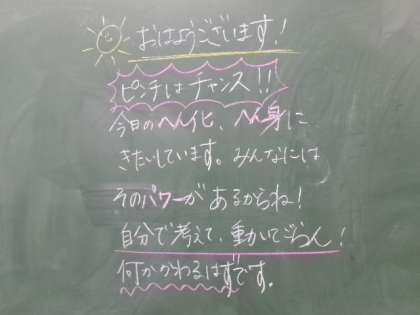 おはようございます!
ピンチはチャンス!!
今日のへん化、へん身に
きたいしています。みんなには
そのパワーがあるからね!
自分で考えて、動いてごらん!
何かかわるはずです。